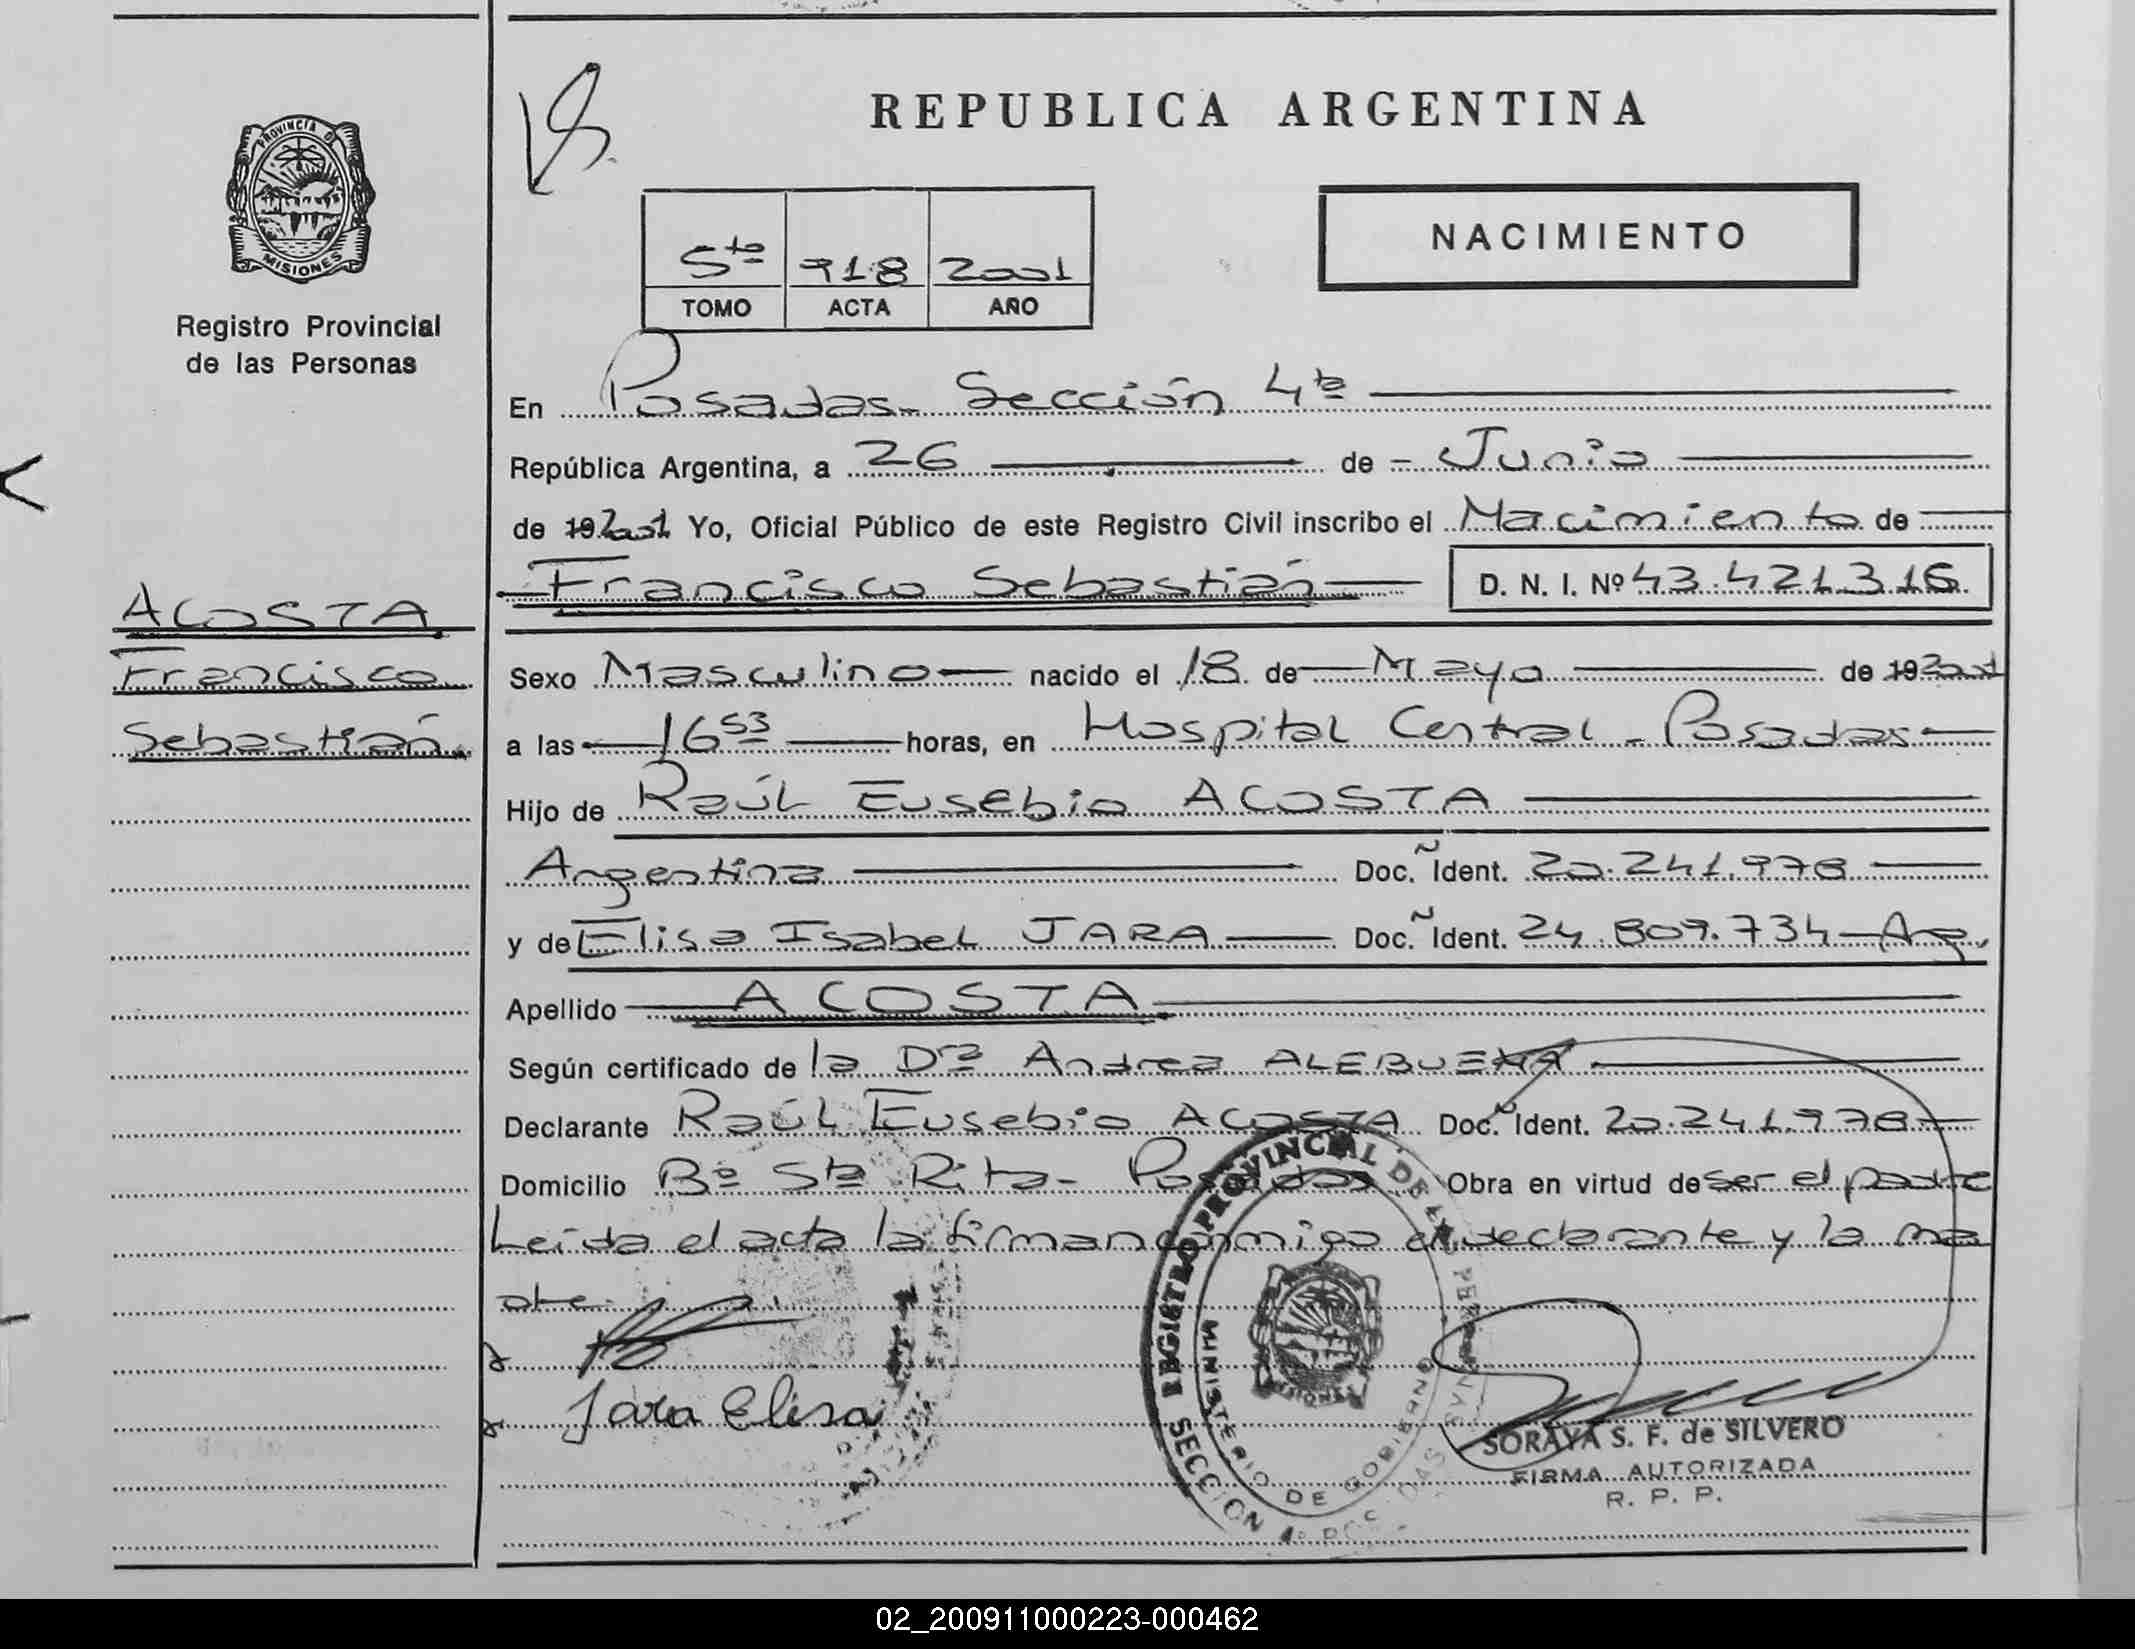 REPUBLICA ARGENTINA
PROVINCIA DE
MISIONES
Registro Provincial
de las Personas
5to 918 2001
TOMO ACTA AÑO
NACIMIENTO
En Posadas - Sección 4ta
República Argentina, a 26 de - Junio
de 19 2001 Yo, Oficial Público de este Registro Civil inscribo el Nacimiento de
Francisco Sebastián D. N. I. Nº 43.421.316
ACOSTA
Francisco
Sebastián
Sexo Masculino nacido el 18 de Mayo de 19 2001
a las 16 53 horas, en Hospital Central - Posadas
Hijo de Raúl Eusebio ACOSTA
Argentina Doc. Ident. 20.241.978
y de Elisa Isabel JARA Doc. Ident. 24.809.734 - Arg.
Apellido ACOSTA
Según certificado de la Dra Andrea
Declarante Raúl Eusebio ACOSTA Doc. Ident. 20.241.978
Domicilio Bº Sta Rita - Posadas Obra en virtud de ser el padre
Leída el acta la firman conmigo el declarante y la ma
dre.
Jara Elisa
REGISTRO PROVINCIAL DE LAS PERSONAS
MINISTERIO DE GOBIERNO
MISIONES
SECCION 4º
SORAYA S. F. de SILVERO
FIRMA AUTORIZADA
R. P. P.
02_200911000223-000462